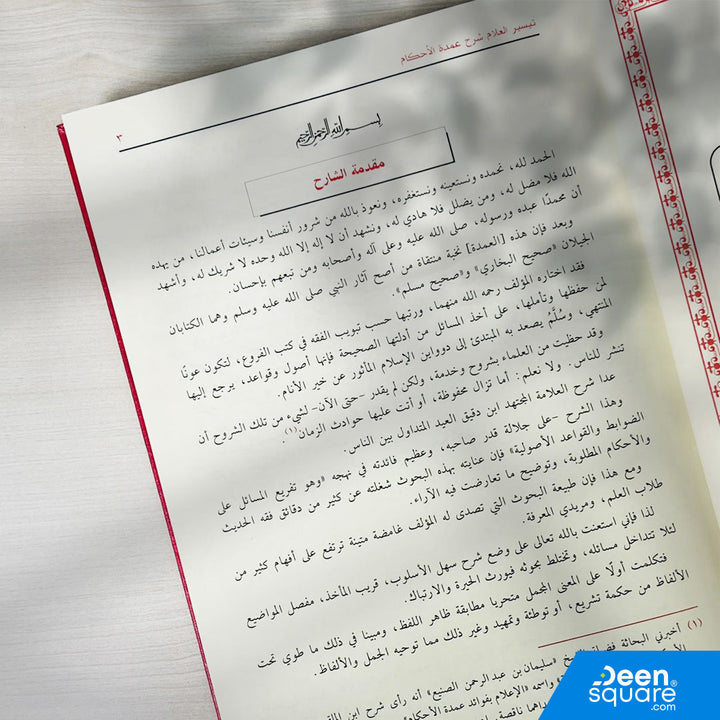 تيسير العلام شرح عمدة الأحكام
٣
بسم الله الرحمن الرحيم
مقدمة الشارح
الحمد لله، نحمده ونستعينه ونستغفره، ونعوذ بالله من شرور أنفسنا وسيئات أعمالنا، من يهده
الله فلا مضل له، ومن يضلل فلا هادي له، ونشهد أن لا إله إلا الله وحده لا شريك له، وأشهد
أن محمدًا عبده ورسوله، صلى الله عليه وعلى آله وأصحابه ومن تبعهم بإحسان.
وبعد فإن هذه [العمدة] نخبة منتقاة من أصح آثار النبي صلى الله عليه وسلم وهما الكتابان
الجيلان «صحيح البخاري» و«صحيح مسلم».
فقد اختاره المؤلف رحمه الله منهما، ورتبها حسب تبويب الفقه في كتب الفروع، لتكون عونًا
لمن حفظها وتأملها، على أخذ المسائل من أدلتها الصحيحة فإنها أصول وقواعد، يرجع إليها
المنتهي، وسُلَّمُ يصعد به المبتدئ إلى دوواين الإسلام المأثور عن خير الأنام.
وقد حظيت من العلماء بشروح وخدمة، ولكن لم يقدر -حتى الآن- لشيء من تلك الشروح أن
تنشر للناس. ولا نعلم: أما تزال محفوظة، أو أتت عليها حوادث الزمان(١).
عدا شرح العلامة المجتهد ابن دقيق العيد المتداول بين الناس.
وهذا الشرح -على جلالة قدر صاحبه، وعظيم فائدته في نهجه «وهو تفريع المسائل على
الضوابط والقواعد الأصولية» فإن عنايته بهذه البحوث شغلته عن كثير من دقائق فقه الحديث
والأحكام المطلوبة، وتوضيح ما تعارضت فيه الآراء.
ومع هذا فإن طبيعة البحوث التي تصدى له المؤلف غامضة متينة ترتفع على أفهام كثير من
طلاب العلم، ومريدي المعرفة.
لذا فإني استعنت بالله تعالى على وضع شرح سهل الأسلوب، قريب المأخذ، مفصل المواضيع
لئلا تتداخل مسائله، وتختلط بحوثه فيورث الحيرة والارتباك.
فتكلمت أولًا على المعنى المجمل متحريا مطابقة ظاهر اللفظ، ومبينا في ذلك ما طوي تحت
الألفاظ من حكمة تشريع، أو توطئة وتمهيد وغير ذلك مما توحيه الجمل والألفاظ.
(١) أخبرني البحاثة الشيخ «سليمان بن عبد الرحمن الصنيع» أنه رأى شرح ابن
واسمه «الإعلام بفوائد عمدة الأحكام»
ناقصة
Deen
square®
.com